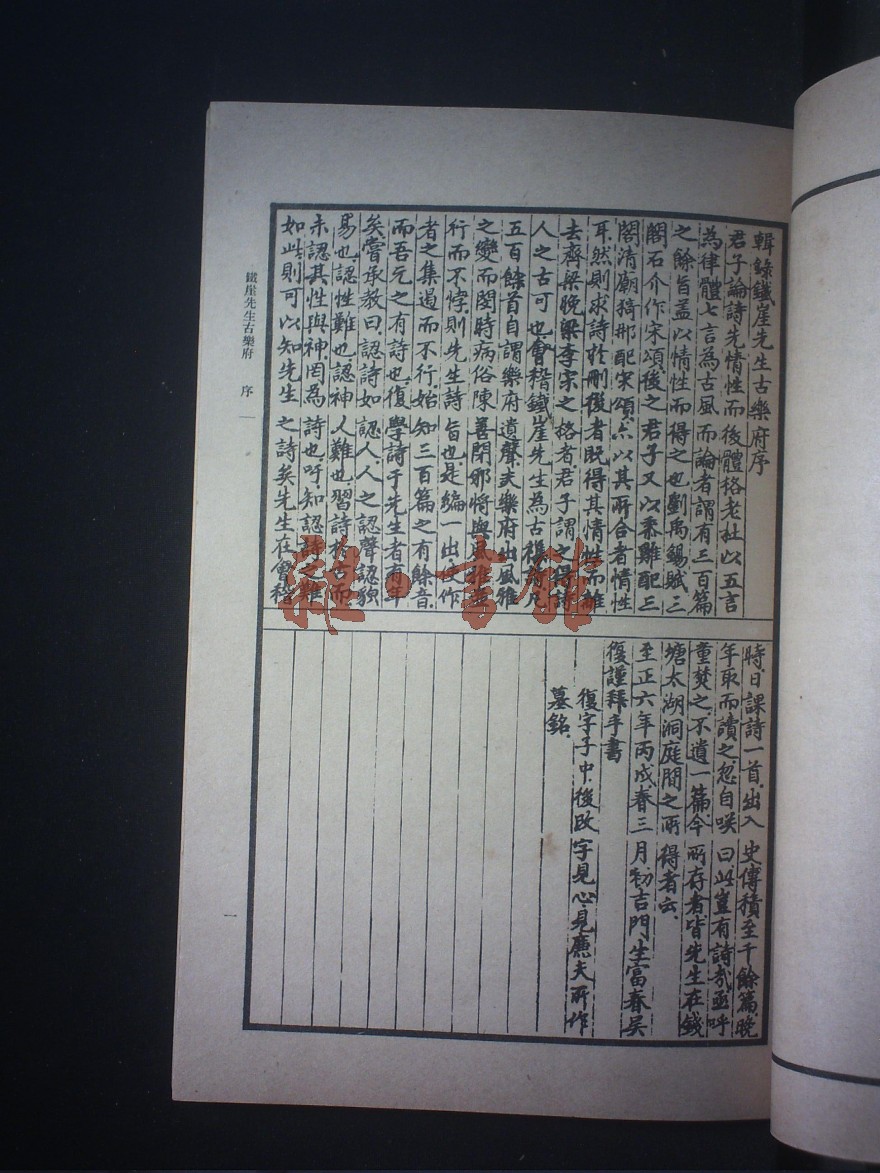 輯錄鐵崖先生古樂府序
君子論詩先情性而後體格老杜以五言
為律體七言為古風而論者謂有三百篇
之餘旨盖以情性而得之也劉禹錫賦三
閣石介作宋頌後之君子又以黍離配三
閣清廟猗那配宋頌亦以其所合者情性
耳然則求詩於刪後者既得其情性而離
去齊梁晚唐李宋之格者君子謂之得詩
人之古可也會稽鐵崖先生為古樂府凡
五百餘首自謂樂府遺聲夫樂府出風雅
之變而閔時病俗陳善閉邪將與風雅並
行而不悖則先生詩旨也是編一出使作
者之集遏而不行始知三百篇之有餘音
而吾元之有詩也復學詩于先生者有年
矣嘗承教曰認詩如認人人之認聲認貌
易也認性難也認神又難也習詩於古而
未認其性與神罔為詩也吁知認詩之難
如此則可以知先生之詩矣先生在會稽
時日課詩一首出入史傳積至千餘篇晚
年取而讀之忽自咲曰此豈有詩哉亟呼
童焚之不遺一篇今所存者皆先生在錢
塘太湖洞庭間之所得者云
至正六年丙戌春三月初吉門生富春吳
復謹拜手書
復字子中後改字見心見廉夫所作
墓銘
鐵崖先生古樂府 序 一
一
雜書館